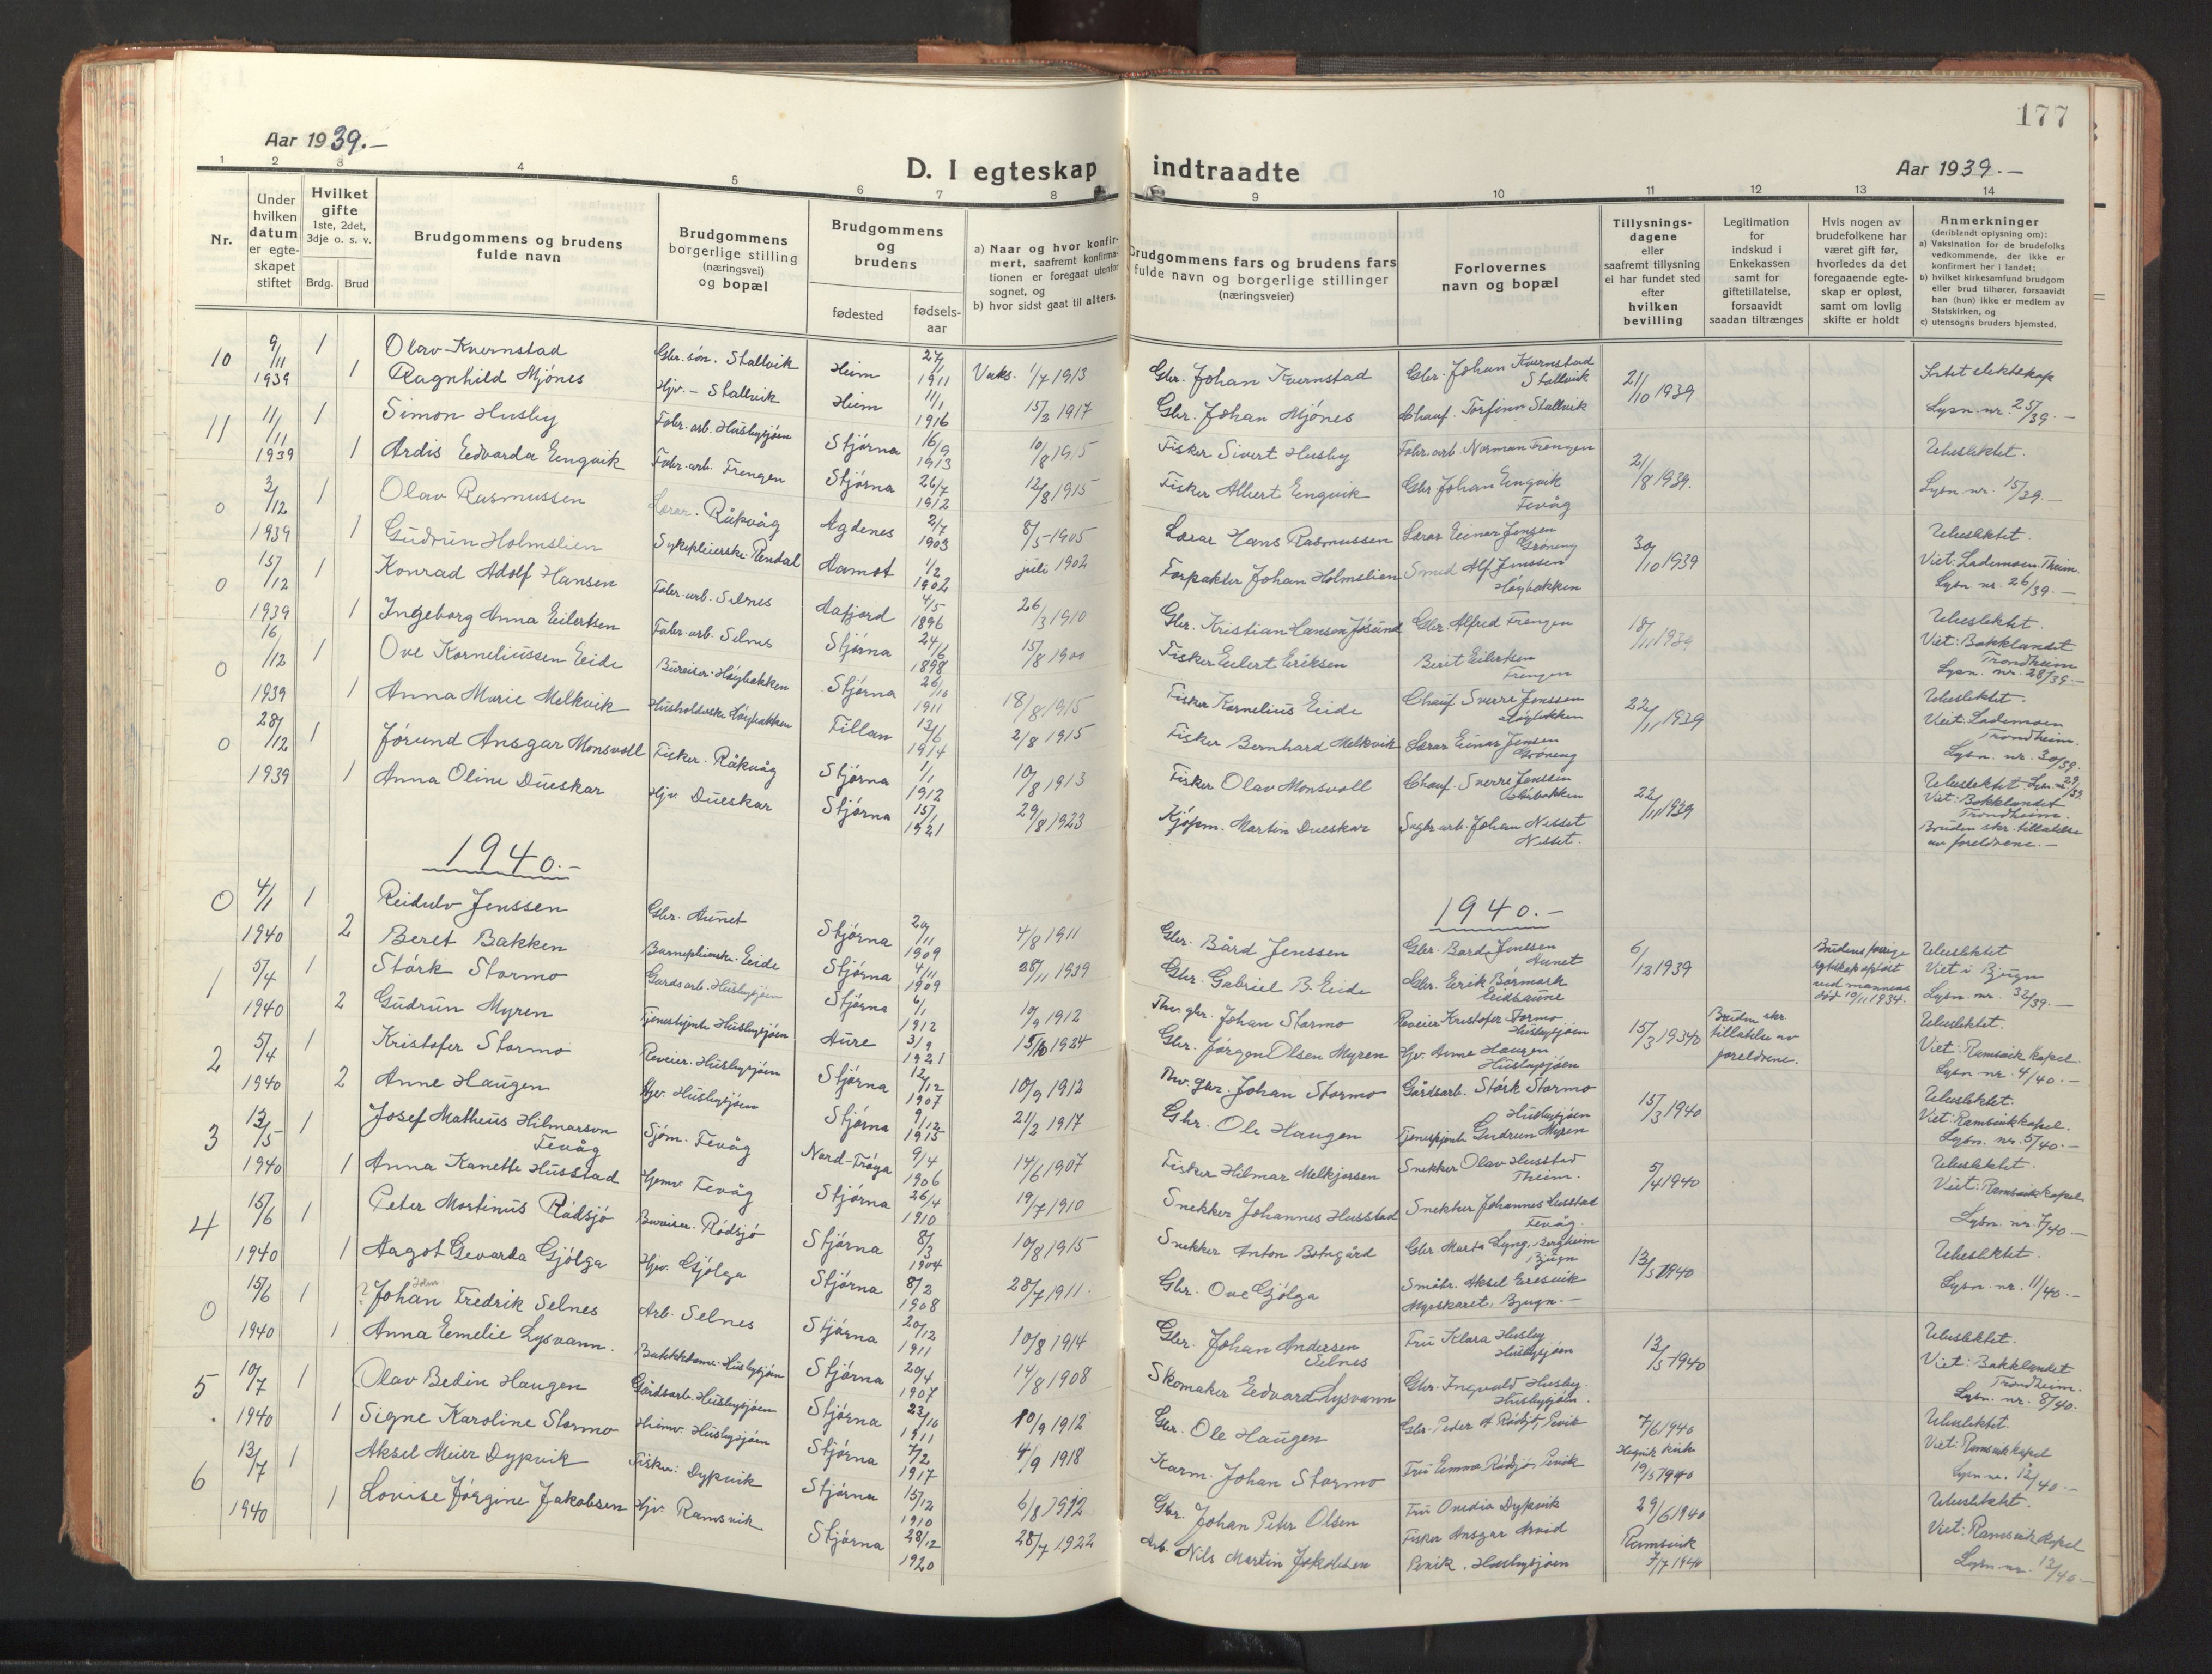 177
Aar 1939.-
D. I egteskap indtraadte
Aar 1939.-
1 2 3 4 5 6 7 8 9 10 11 12 13 14
Nr.
Under hvilken datum er egteskapet stiftet
Hvilket gifte 1ste, 2det, 3dje o. s. v.
Brdg. Brud
Brudgommens og brudens fulde navn
Brudgommens borgerlige stilling (næringsvei) og bopæl
Brudgommens og brudens
fødested
fødsels-aar
a) Naar og hvor konfirmert, saafremt konfirmationen er foregaat utenfor sognet, og
b) hvor sidst gaat til alters.
Brudgommens fars og brudens fars fulde navn og borgerlige stillinger (næringsveier)
Forlovernes navn og bopæl
Tillysningsdagene eller saafremt tillysning ei har fundet sted efter hvilken bevilling
Legitimation for indskud i Enkekassen samt for giftetillatelse, forsaavidt saadan tiltrænges
Hvis nogen av brudefolkene har været gift før, hvorledes da det foregaaende egteskap er opløst, samt om lovlig skifte er holdt
Anmerkninger (deriblendt oplysning om):
a) Vaksination for de brudefolks vedkommende, der ikke er konfirmert her i landet;
b) hvilket kirkesamfund brudgom eller brud tilhører, forsaavidt han (hun) ikke er medlem av Statskirken, og
c) utensogns bruders hjemsted.
10 9/11 1939 1 Olav Kvernstad Gbr. søn. Stallvik Heim 27/1 1911 Vaks. 1/7 1913 Gbr. Johan Kvernstad Gbr. Johan Kvernstad Stallvik 21/10 1939
1 Ragnhild Mjønes Hjv. - Stallvik Heim 11/1 1916 15/2 1917 Gbr. Johan Mjønes Chauf. Torfinn Stallvik Lysn. nr. 25/39.-
11 11/11 1939 1 Simon Husby Fabr. arb. Husbysjøen Stjørna 16/9 1913 10/8 1915 Fisker Sivert Husby Fabr. arb. Norman Frengen 21/8 1939. Ubeslektet.
1 Ardis Edvarda Engvik Fabr. arb. Frengen Stjørna 26/7 1912 12/8 1915 Fisker Albert Engvik Gbr Johan Engvik Fevåg Lysn nr. 15/39.-
0 3/12 1939 1 Olav Rasmussen Lærar. Råkvåg Agdenes 2/7 1903 8/5-1905 Lærar Hans Rasmussen Lærar Einar Jensen Grøneng 30/10 1939 Ubeslektet.
1 Gudrun Holmslien Sykepleierske. Rendal Aamot 1/2 1902 juli 1902 Forpakter Johan Holmslien Smed Alf Jenssen Høybakken Viet: Lademoen Theim. Lysn nr. 26/39.-
0 15/12 1939 1 Konrad Adolf Hansen Fabr. arb. Selnes Aafjord 4/5 1896 26/3 1910 Gbr. Kristian Hansen Jøsund Gbr. Alfred Frengen 18/11 1939 Ubeslektet.
1 Ingeborg Anna Eilertsen Fabr. arb. Selnes Stjørna 24/6 1898 15/8 1900 Fisker Eilert Eriksen Berit Eilertsen Frengen Viet: Bakklandet Trondheim Lysn. nr. 28/39.-
0 16/12 1939 1 Ove Korneliussen Eide Bureiser. Høybakken Stjørna 26/10 1911 18/8 1915 Fisker Kornelius Eide Chauf Sverre Jenssen Høybakken 22/11 1939 Ubeslektet.
1 Anna Marie Melkvik Husholderske Høybakken Fillan 13/6 1914 2/8 1915 Fisker Bernhard Melkvik Lærar Einar Jensen Grøneng Viet: Lademoen Trondheim. Lysn. nr. 30/39.
0 28/12 1939 1 Jørund Ansgar Monsvoll Fisker. Råkvåg Stjørna 1/1 1912 10/8 1913 Fisker Olav Monsvoll Chauf. Sverre Jenssen Høybakken 22/11 1939 Ubeslektet. Lysn. nr 29/39.
1 Anna Oline Dueskar Hjv. Dueskar Stjørna 15/1 1921 29/8 1923 Kjøpm. Martin Dueskar Sagbr. arb. Johan Nesset Nesset. Viet: Bakklandet Trondheim. Bruden skr. tillatelse av foreldrene.-
1940.-
1940.-
0 4/1 1940 1 Reidulv Jenssen Gbr. Aunet Stjørna 20/11 1909 4/8 1911 Gbr. Bård Jenssen Gbr. Bård Jenssen Aunet 6/12 1939 Brudens forrige egteskap opløst ved mannens død 10/11 1934. Ubeslektet
2 Beret Bakken Barnepleierske. Eide Stjørna 4/11 1909 28/11 1939 Gbr. Gabriel B. Eide Gbr. Erik Børmark Eidsaune Viet i Bjugn Lysn. nr. 32/39.-
1 5/4 1940 1 Størk Stormo Gardsarb. Husbysjøen Stjørna 6/1 1912 10/9 1912 Thv. gbr. Johan Stormo Røveier Kristofer Stormo Husbysjøen 15/3 1940 Bruden skr. tillatelse av foreldrene. Ubeslektet.
2 Gudrun Myren Tjenestejente Husbysjøen Aure 3/9 1921 15/10 1924 Gbr. Jørgen Olsen Myren Hjv. Anne Haugen Husbysjøen Viet: Ramsvik kapel. Lysn nr. 4/40.-
2 5/4 1940 1 Kristofer Stormo Røveier. Husbysjøen Stjørna 12/12 1907 10/9 1912 Thv. gbr. Johan Stormo Gårdsarb. Størk Stormo Husbysjøen 15/3 1940 Ubeslektet.
2 Anne Haugen Hjv. Husbysjøen Stjørna 9/12 1915 21/2 1917 Gbr. Ole Haugen Tjenestejente Gudrun Myren Viet: Ramsvik kapel. Lysn. nr. 5/40.-
3 12/5 1940 1 Josef Matheus Hilmarson Fevåg Sjøm. Fevåg Nord-Frøya 9/4 1906 14/6 1907 Fisker Hilmar Melkjorsen Snekker Olav Husstad Theim. 5/4 1940 Ubeslektet.
1 Anna Kanette Husstad Hjmv Fevåg Stjørna 26/4 1910 19/7 1910 Snekker Johannes Husstad Snekker Johannes Husstad Fevåg. Viet: Ramsvik kapel Lysn. nr. 7/40-
4 15/6 1940 1 Peter Martinus Rødsjø Bureiser. Rødsjø Stjørna 8/3 1904 10/8 1915 Snekker Anton Botngård Gbr Marta Lyng, Bergheim Bjugn 13/5 1940 Ubeslektet.
1 Aagot Gevarda Gjølga Hjv. Gjølga Stjørna 8/2 1908 28/7 1911. Gbr. Ove Gjølga Småbr. Aksel Eresvik Myrskaret, Bjugn.- Lysn. nr. 11/40.-
0 15/6 1940 1 ? Johan Fredrik Selnes Arb. Selnes Stjørna 20/12 1911 10/8 1914 Gbr. Johan Andersen Selnes Fru Klara Husby Husbysjøen 13/5 1940 Ubeslektet.
1 Anna Emelie Lysvann. Butikkdame. Husbysjøen Stjørna 20/4 1907 14/8 1908 Skomaker Edvard Lysvann Gbr. Ingvald Husby. Husbysjøen. Viet: Bakklandet Trondheim. Lysn. nr. 8/40.
5 10/7 1940 1 Olav Bedin Haugen Gårdsarb. Husbysjøen Stjørna 23/10 1911 10/9 1912 Gbr. Ole Haugen Gbr. Peder A Rødsjø, Pevik 7/6 1940 Ubeslektet.
1 Signe Karoline Stormo Heimv. Husbysjøen Stjørna 7/2 1917 4/9 1918 Karm. Johan Stormo Fru Emma Rødsjø Pevik Hegvik kirke 19/5 1940 Viet: Ramsvik kapel Lysn. nr. 12/40.-
6 13/7 1940 1 Aksel Meier Dypvik Fisker: Dypvik Stjørna 15/12 1910 6/8 1912 Gbr. Johan Peter Olsen Fru Ovedia Dypvik 29/6 1940 Ubeslektet.
1 Lovise Jørgine Jakobsen Hjv. Ramsvik Stjørna 28/12 1920 28/7 1922 Arb. Nils Martin Jakobsen Fisker Ansgar Arvid Pevik. Husbysjøen Ramsvik 7/7 1940 Viet: Ramsvik kapel Lysn. nr. 13/40.-